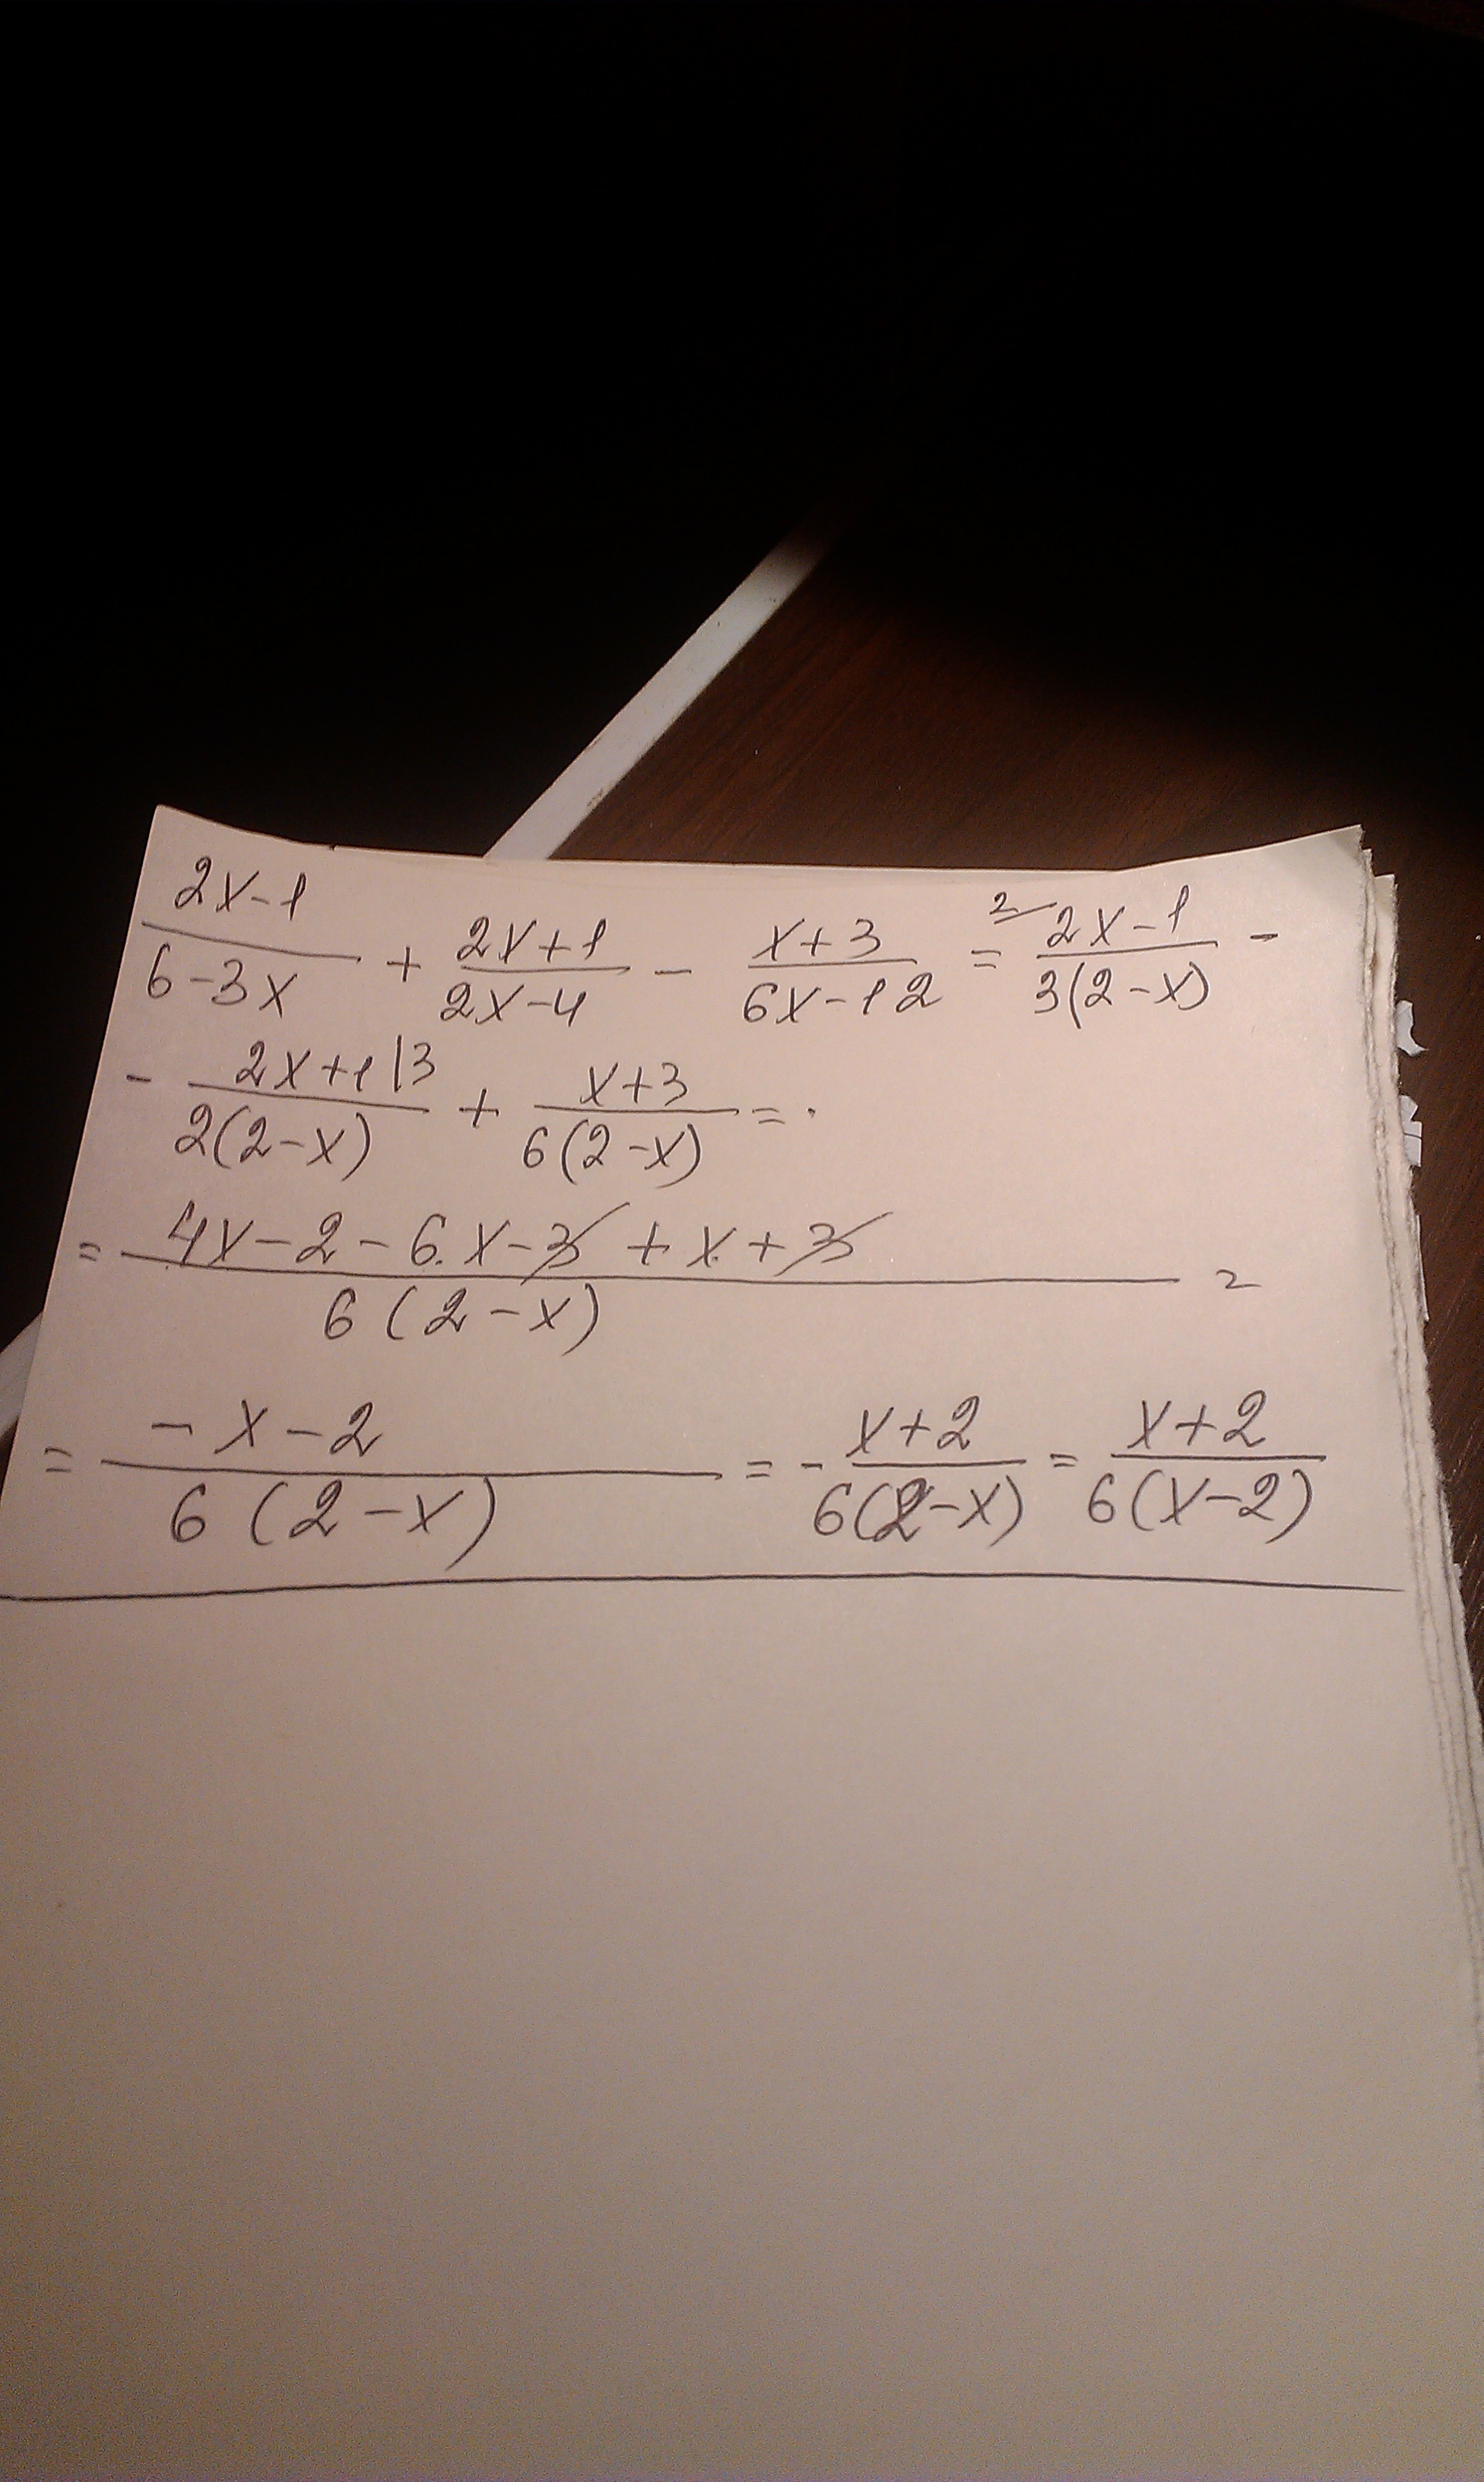 (2x-1)/(6-3x) + (2x+1)/(2x-4) - (x+3)/(6x-12) = 2/ (2x-1)/(3(2-x)) -
- (2x+1|3)/(2(2-x)) + (x+3)/(6(2-x)) = .
= (4x-2-6.x-3+x.+3)/(6(2-x)) =
= (-x-2)/(6(2-x)) = -(x+2)/(6(2-x)) = (x+2)/(6(x-2))